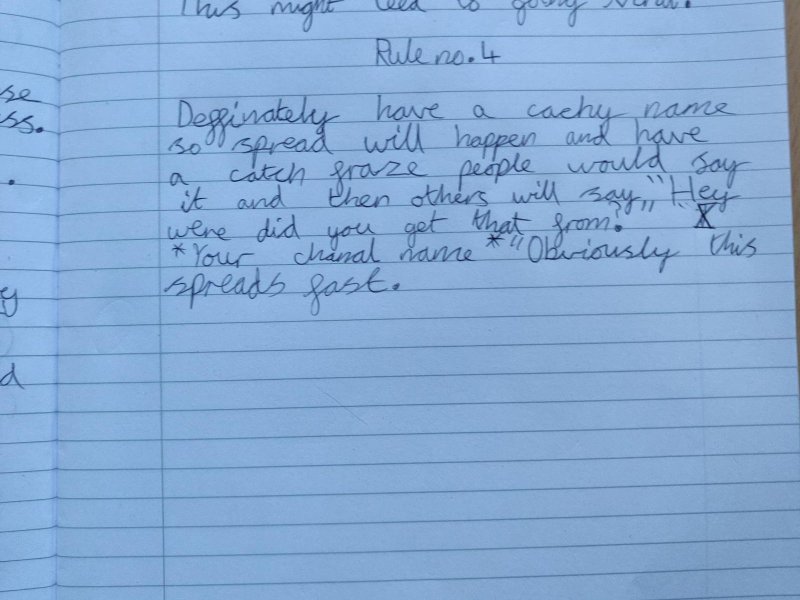 This might lead to going viral.
Rule no.4
se
ss.
Deffinately have a cachy name
so spread will happen and have
a catch fraze people would say
it and then others will say,, "Hey
were did you get that from."
*Your chanal name*" Obviously this
spreads fast.
y
d